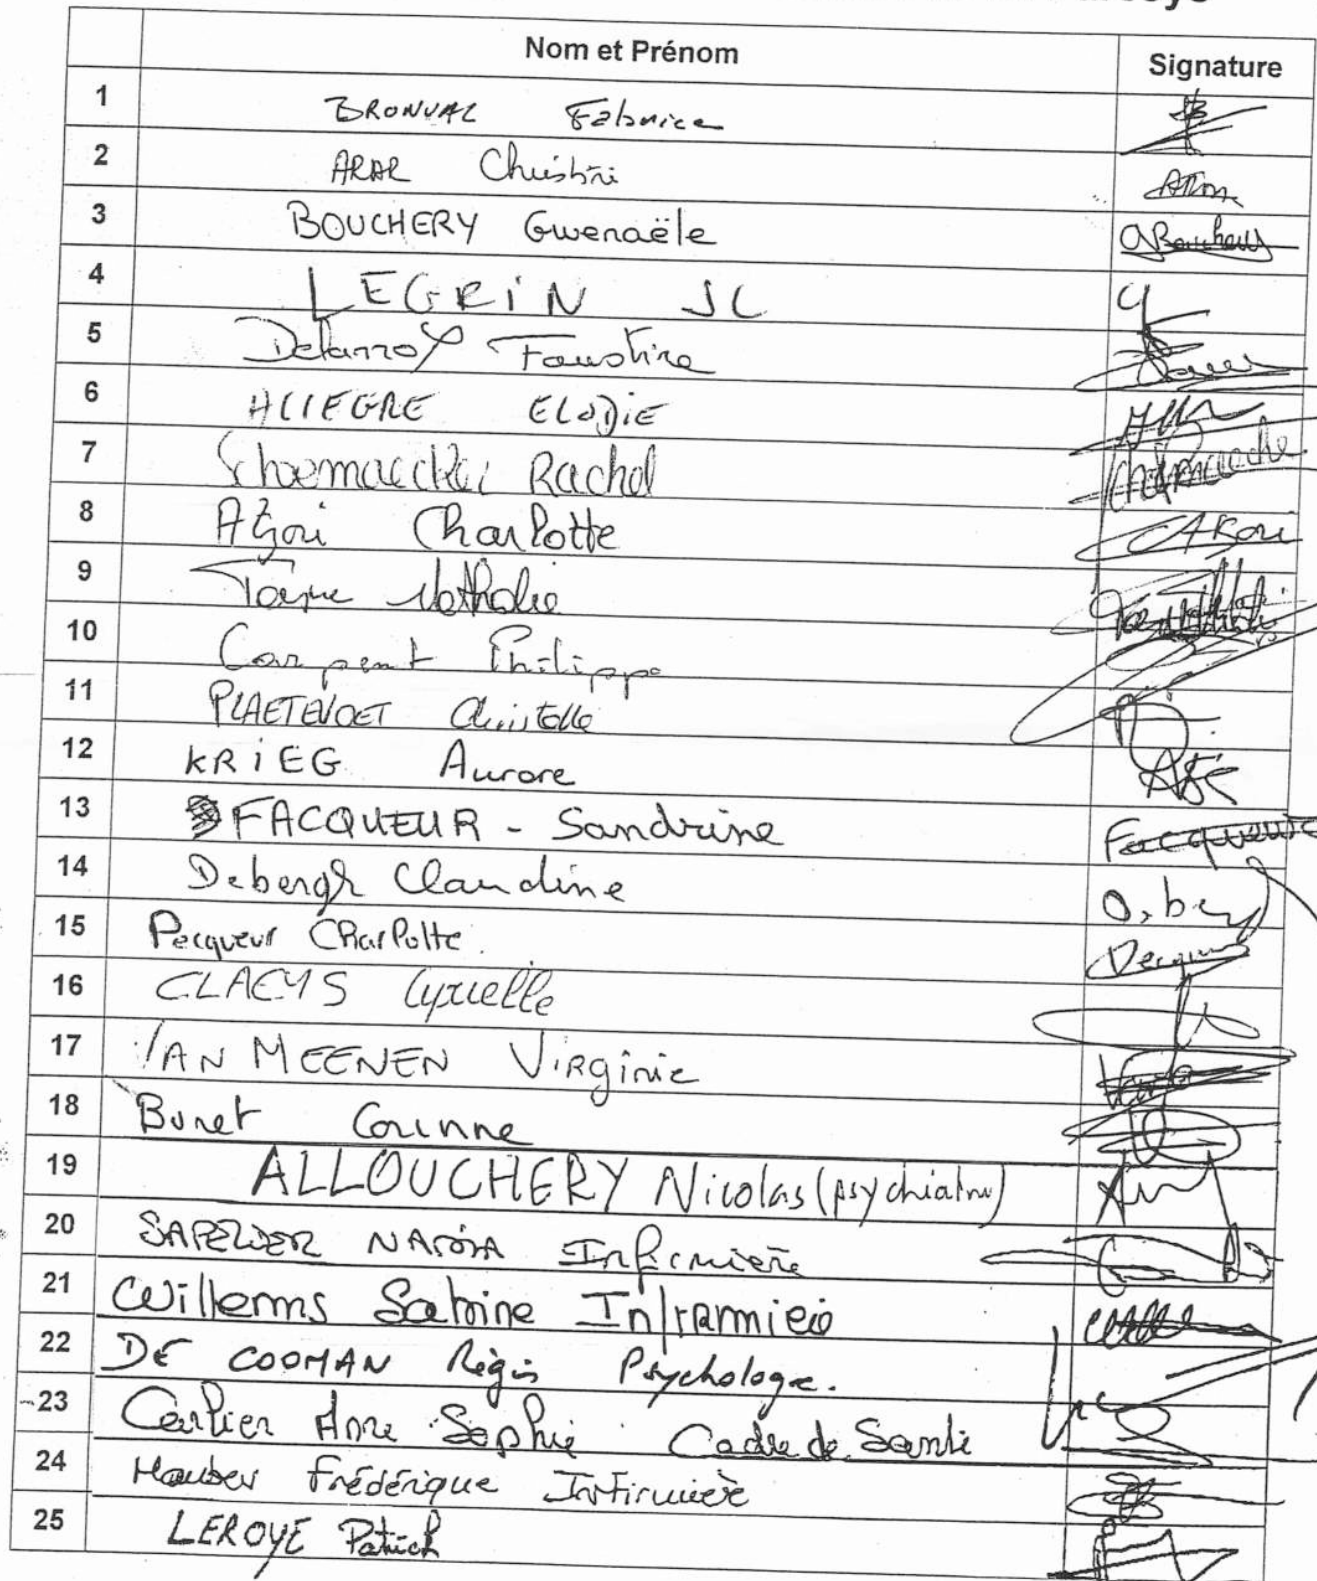 Nom et Prénom Signature
1 BRONVAL Fabrice
2 ARAR Christine
3 BOUCHERY Gwenaële GBouchery
4 LEGRIN JC
5 Delannoy Faustine
6 ALIEGRE ELODIE
7 Schoemaecker Rachel
8 Azori Charlotte
9 Nathalie
10 Carpent Philippe
11 PLAETEVOET Christelle
12 KRiEG Aurore
13 FACQUEUR - Sandrine Facqueur
14 Debergh Claudine
15 Pecqueur Charlotte
16 CLAEYS Cyrielle
17 VAN MEENEN Virginie
18 Buret Corinne
19 ALLOUCHERY Nicolas (psychiatre)
20 Infirmière
21 Willems Sabine Infirmière
22 DE COOMAN Régis Psychologue.
23 Carlier Anne Sophie Cadre de Santé
24 Frédérique Infirmière
25 LEROYE Patrick